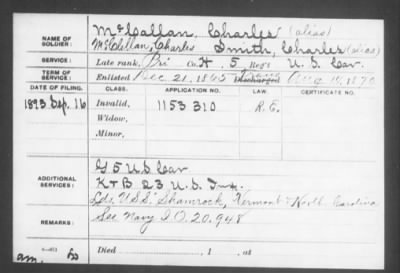 NAME OF SOLDIER:
McCallan, Charles (alias)
McClellan, Charles Smith, Charles (alias)
SERVICE:
Late rank, Pri Co. H, 5 Reg't U. S. Cav.
TERM OF SERVICE:
Enlisted Dec 21, 1865 Discharged 1870
DATE OF FILING. CLASS. APPLICATION NO. LAW. CERTIFICATE NO.
1893 Sep. 16 Invalid, 1153 310
Widow,
Minor,
ADDITIONAL SERVICES:
G 5 U.S. Cav
K & B 23 U.S. Inf.
Lds. U.S.S. Shamrock, Vermont & North Carolina
REMARKS:
See Navy I.O. 20,948
Died , 1 , at